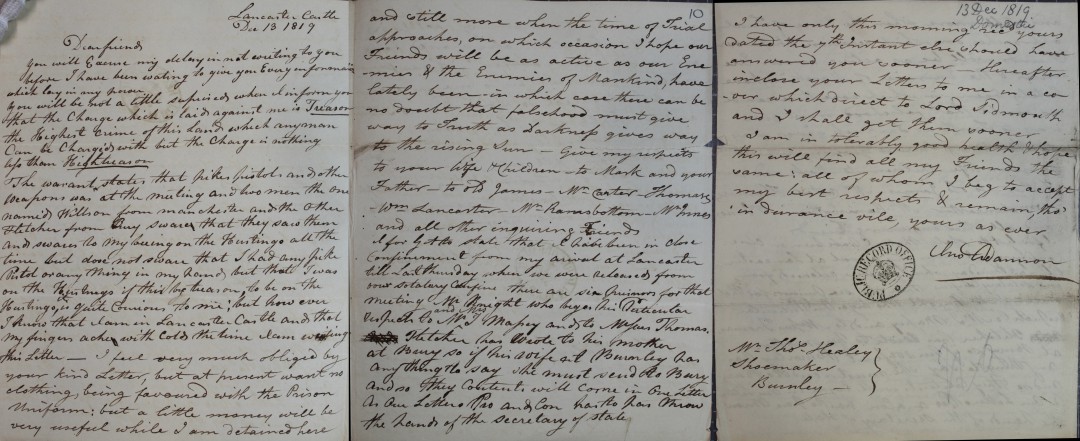 Lancaster Castle
Dec 13 1819
Dear friends
you will Excuse my delay in not writing to you
before I have been wating to give you Every information
which lay in my power
you will be not a little suprised when I inform you
that the Charge which is laid against me is Treason
the Highest Crime of this Land which any man
Can be Charged with but the Charge is nothing
less than High treason
The warant states that pikes pistols and other
weapons was at the meeting and two men the one
named Willson from manchester and the other
Fletcher from Bury swares that they saw them
and swares to my being on the Hustings all the
time but does not sware that I had any pike
Pistol or any thing in my hand, but that I was
on the Hustings if this by treason, to be on the
Hustings, is quite Curious to me; but how ever
I know that I am in Lancaster Castle and that
my fingers aches with cold the time I am writing
this Letter — I feel very much obliged by
your kind Letter, but at present want no
clothing, being favoured with the Prison
Uniform; but a little money will be
very useful while I am detained here
10
and still more when the time of Trial
approaches, on which occasion I hope our
Friends will be as active as our Ene-
mies & the Enemies of Mankind, have
lately been — in which case there can be
no doubt that falsehood must give
way to Truth as Darkness gives way
to the rising Sun — Give my respects
to your Wife & Children — to Mark and your
Father — to Old James — Mr Carter — Thomas
— Wm Lancaster — Mr Ramsbottom — Mr
and all other inquiring Friends
I for Got to state that I have been in close
Confinement from my arival at Lancaster
till Last thursday when we were released from
our solatary Confine there are six prisoners for that
meeting Mr Knight who begs his Perticular
respects to Mr and Mrs J Massey and to Thomas.
Fletcher has wrote to his mother
at Bury so if his wife at Burnley has
any thing to say she must send to Bury
and so they Contents will come in One Letter
as Our Letters Pro and Con has to pass throw
the hands of the secretary of state
13 Dec 1819
I have only this morning rec'd yours
dated the 7th Instant else should have
answered you sooner — Hereafter
inclose your Letters to me in a co-
ver which direct to Lord Sidmouth
and I shall get them sooner
I am in tolerably good health & hope
this will find all my Friends the
same: all of whom I beg to accept
my best respects & remain, tho'
in durance vile, yours as ever
PUBLIC RECORD OFFICE
Mr Thos Healey
Shoemaker
Burnley —